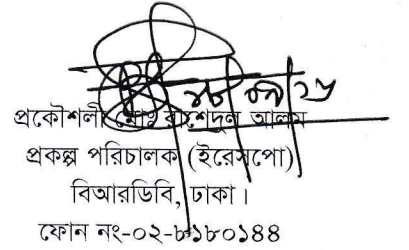 প্রকৌশলী মোঃ রাশেদুল আলম
প্রকল্প পরিচালক (ইরেসপো)
বিআরডিবি, ঢাকা।
ফোন নং-০২-৮১৮০১৪৪